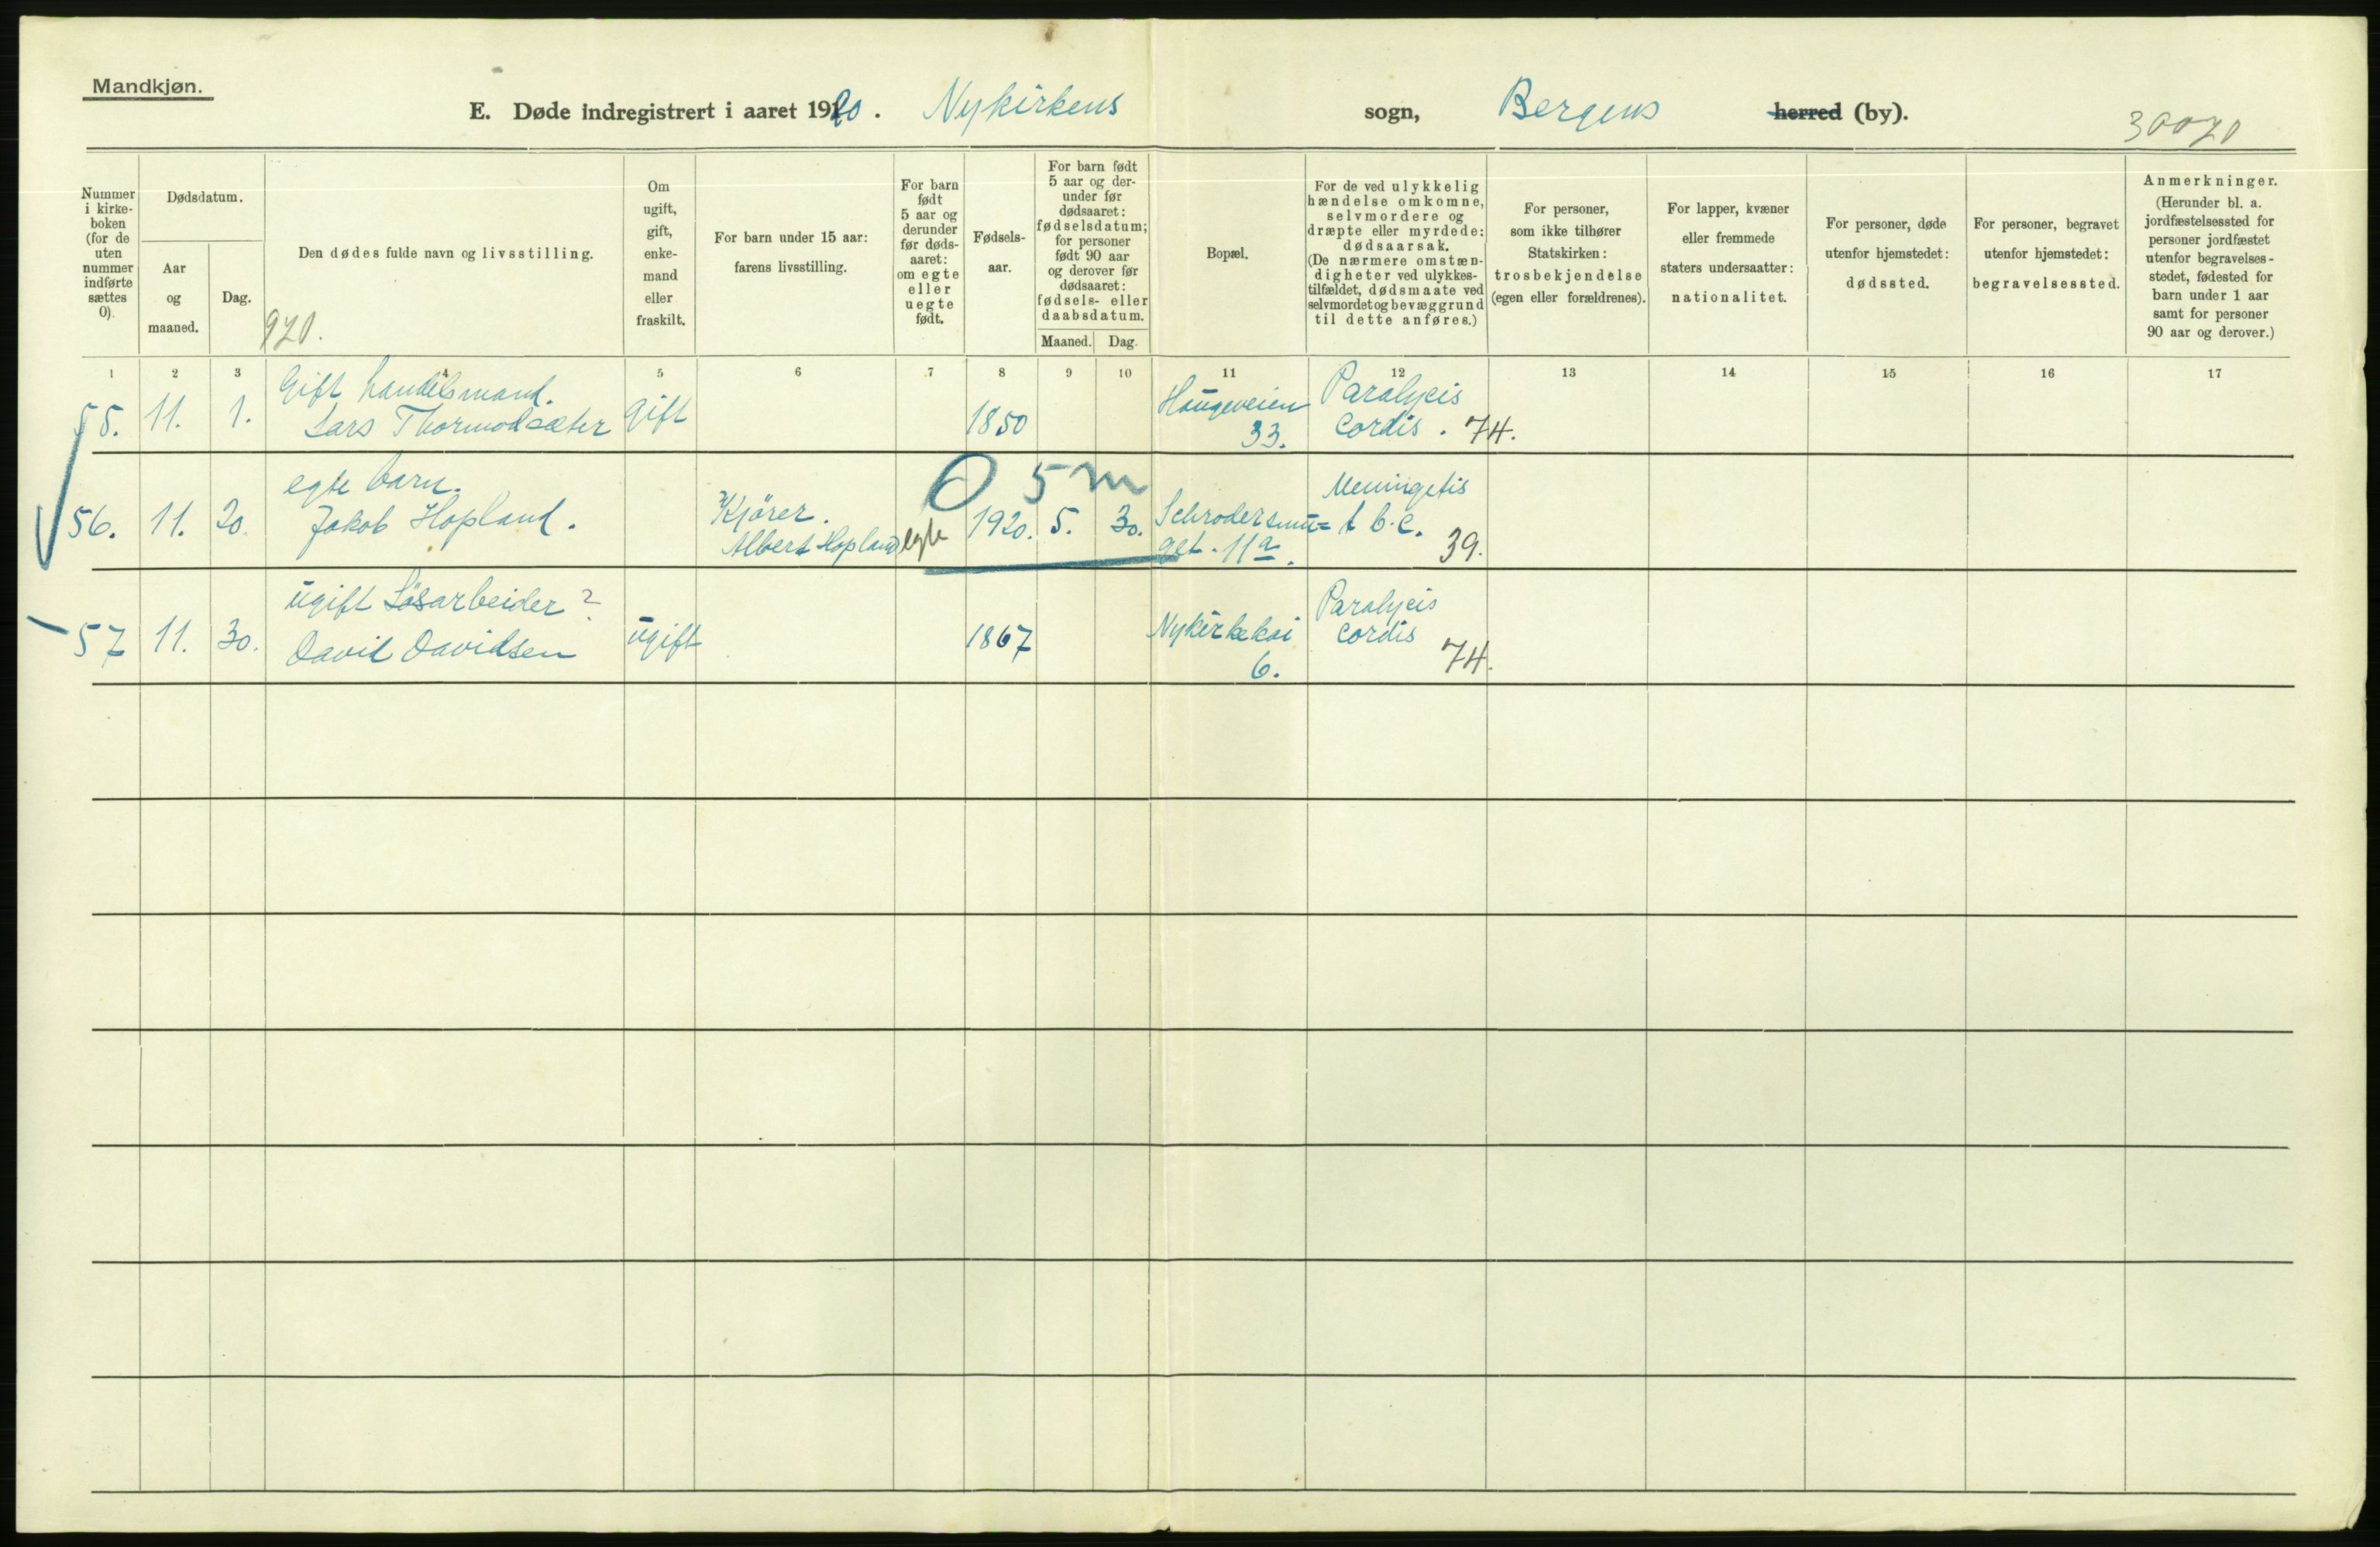 Mandkjøn.
E. Døde indregistrert i aaret 1920. Nykirkens sogn, Bergens herred (by).
Nummer i kirke-boken (for de uten nummer indførte sættes 0).
Dødsdatum.
Aar og maaned.
Dag.
Den dødes fulde navn og livsstilling.
920.
Om ugift, gift, enke-mand eller fraskilt.
For barn under 15 aar: farens livsstilling.
For barn født 5 aar og derunder før døds-aaret: om egte eller uegte født.
Fødsels-aar.
For barn født 5 aar og der-under før dødsaaret: fødselsdatum; for personer født 90 aar og derover før dødsaaret: fødsels- eller daabsdatum.
Maaned. Dag.
Bopæl.
For de ved ulykkelig hændelse omkomne, selvmordere og dræpte eller myrdede: dødsaarsak. (De nærmere omstæn-digheter ved ulykkes-tilfældet, dødsmaate ved selvmordet og bevæggrund til dette anføres.)
For personer, som ikke tilhører Statskirken: trosbekjendelse (egen eller forældrenes).
For lapper, kvæner eller fremmede staters undersaatter: nationalitet.
For personer, døde utenfor hjemstedet: dødssted.
For personer, begravet utenfor hjemstedet: begravelsessted.
Anmerkninger. (Herunder bl. a. jordfæstelsessted for personer jordfæstet utenfor begravelses-stedet, fødested for barn under 1 aar samt for personer 90 aar og derover.)
1 2 3 4 5 6 7 8 9 10 11 12 13 14 15 16 17
Gift handelsmand. Paralycis
55. 11. 1. Lars Thormodsæter Gift 1850 Haugeveien 33. Cordis. 74.
egte barn. 0 5 m Meningetis
56. 11. 20. Jakob Hopland. Kjörer. Albert Hopland egte 1920. 5. 30. Schrodersmu=get. 11a. t b.c. 39.
ugift Løsarbeider? Paralycis
57 11. 30. David Davidsen ugift 1867 Nykirkekai 6. Cordis 74.